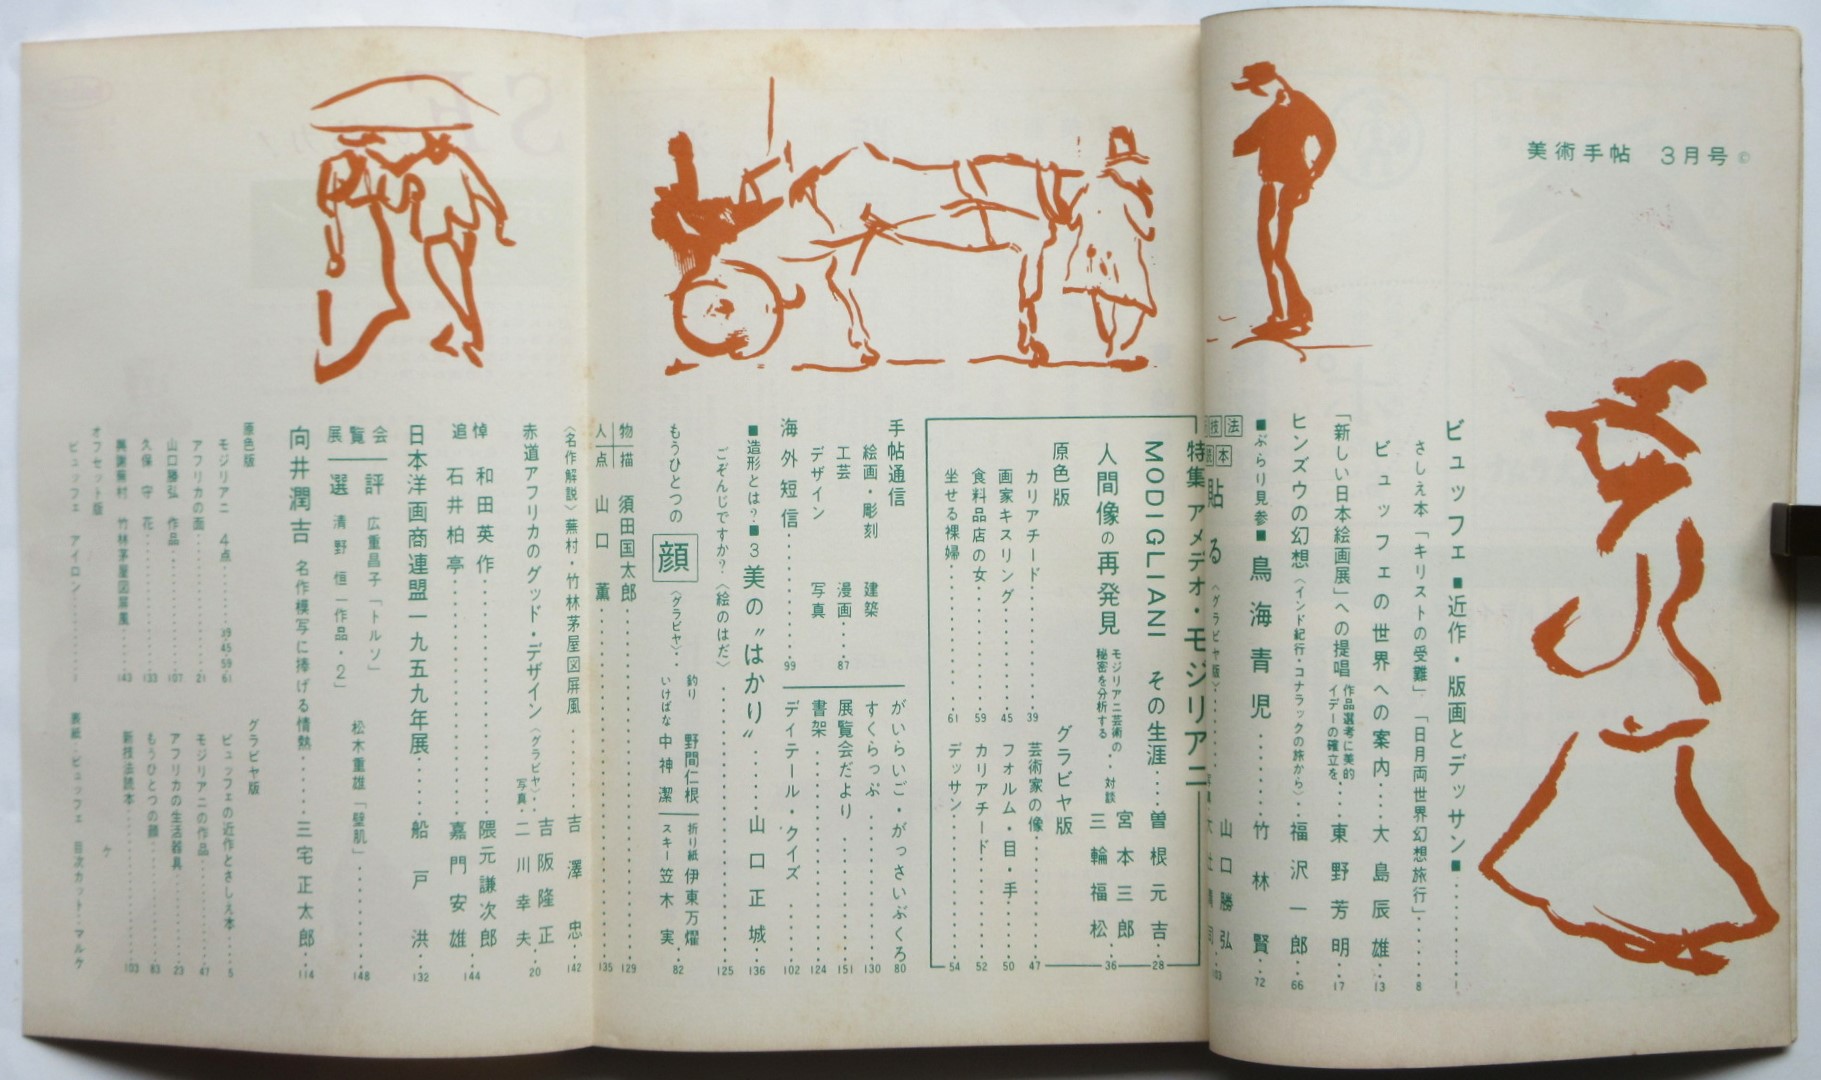 美術手帖 3月号 ©
ビュッフェ ■近作・版画とデッサン■ 1
さしえ本「キリストの受難」「日月両世界幻想旅行」 8
ビュッフェの世界への案内 大島辰雄 13
「新しい日本絵画展」への提唱 作品選考に美的イデーの確立を 東野芳明 17
ヒンズウの幻想〈インド紀行・コナラックの旅から〉 福沢一郎 66
■ぶらり見参■ 鳥海青児 竹林賢 72
技法
読本
貼る〈グラビヤ版〉 山口勝弘 103
特集 アメデオ・モジリアニ
MODIGLIANI その生涯 曽根元吉 28
人間像の再発見 モジリアニ芸術の秘密を分析する 対談 宮本三郎 三輪福松 36
原色版
カリアチード 39
画家キスリング 45
食料品店の女 59
坐せる裸婦 61
グラビヤ版
芸術家の像 47
フォルム・目・手 50
カリアチード 52
デッサン 54
手帖通信
絵画・彫刻 建築
工芸 漫画 87
デザイン 写真
海外短信 99
がいらいご・がっさいぶくろ 80
すくらっぷ 130
展覧会だより 151
書架 124
ディテール・クイズ 102
■造形とは?■ 3 美の〝はかり〟 山口正城 136
ごぞんじですか?〈絵のはだ〉 125
もうひとつの 顔〈グラビヤ〉 釣り 野間仁根 折り紙 伊東万燿
いけばな 中神潔 スキー 笠木実 82
物描 須田国太郎 129
人点 山口薫 135
〈名作解説〉蕪村・竹林茅屋図屏風 吉澤忠 142
赤道アフリカのグッド・デザイン〈グラビヤ〉 吉阪隆正
写真 二川幸夫 20
追悼 和田英作 隈元謙次郎
石井柏亭 嘉門安雄 144
日本洋画商連盟一九五九年展 船戸洪 132
展覧会評 広重昌子「トルソ」 松木重雄「壁肌」 148
選 清野恒一作品・2」
向井潤吉 名作模写に捧げる情熱 三宅正太郎 114
原色版
モジリアニ 4点 39.45.59.61
アフリカの面 21
山口勝弘 作品 107
久保守 花 133
與謝蕪村 竹林茅屋図屏風 143
オフセット版
ビュッフェ アイロン 1
グラビヤ版
ビュッフェの近作とさしえ本 5
モジリアニの作品 47
アフリカの生活器具 23
もうひとつの顔 83
新技法読本 103
表紙・ビュッフェ 目次カット・マルケ